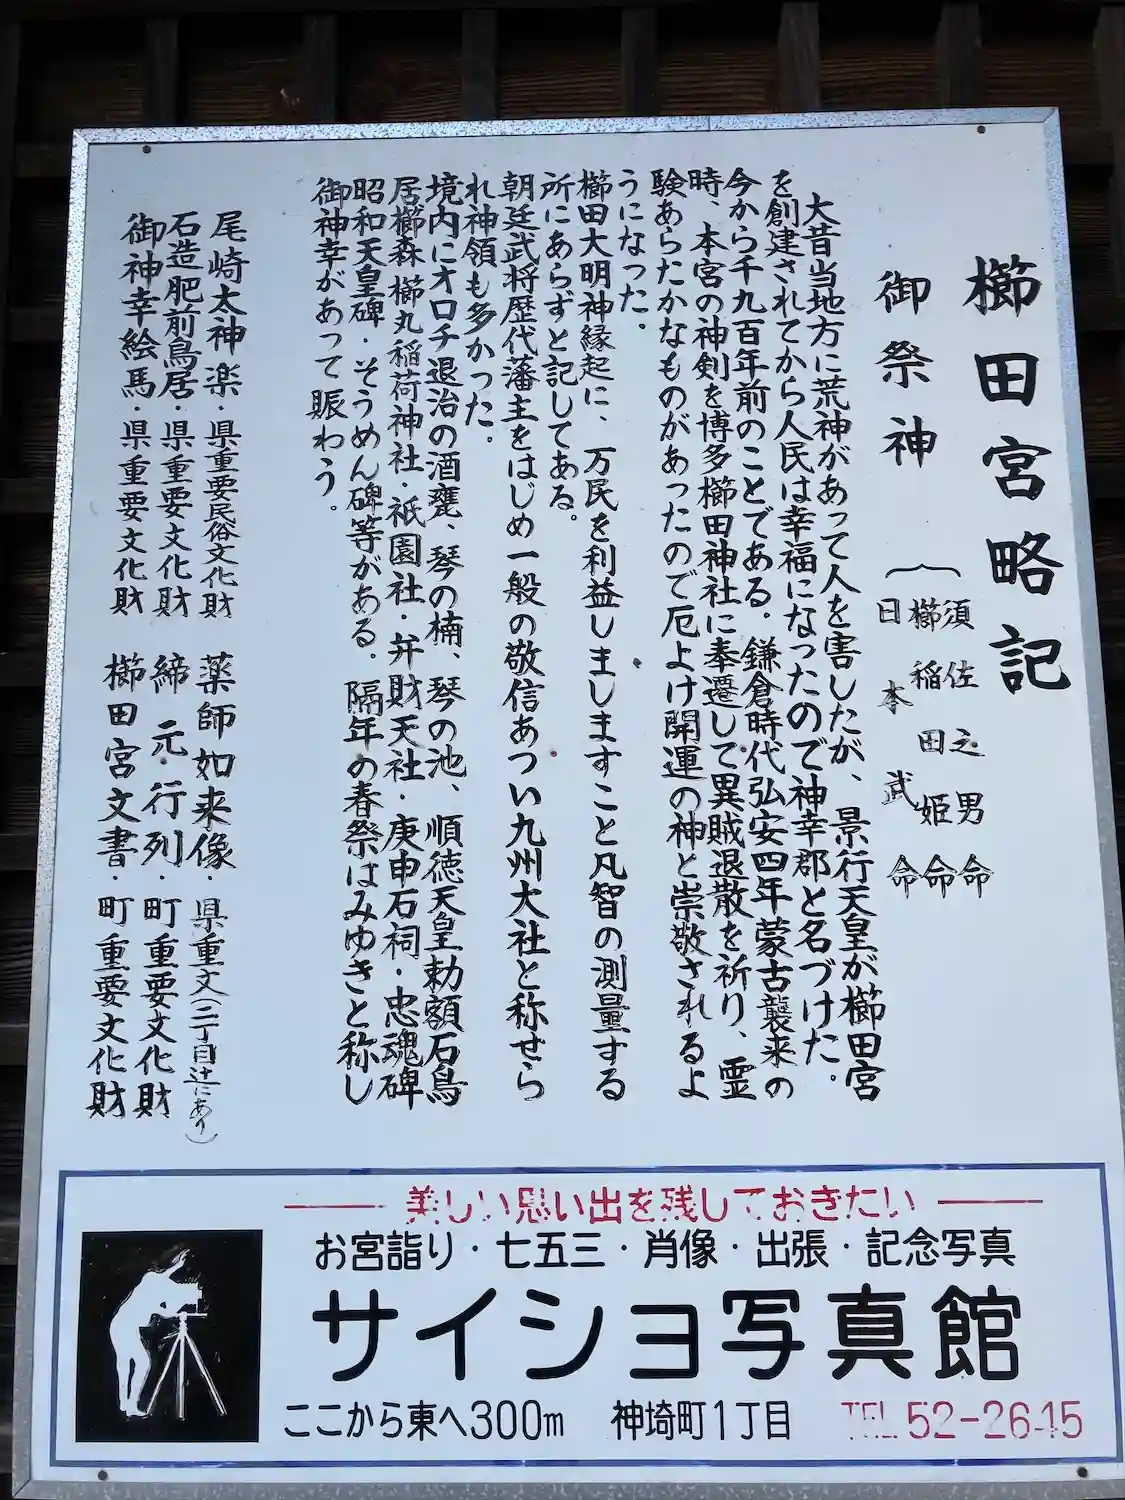 櫛田宮略記
御祭神
須佐之男命
櫛稲田姫命
日本武命
大昔当地方に荒神があって人を害したが、景行天皇が櫛田宮
を創建されてから人民は幸福になったので神幸郡と名づけた。
今から千九百年前のことである。鎌倉時代弘安四年蒙古襲来の
時、本宮の神剣を博多櫛田神社に奉遷して異賊退散を祈り、霊
験あらたかなものがあったので厄よけ開運の神と崇敬されるよ
うになった。
櫛田大明神縁起に、万民を利益しましますこと凡智の測量する
所にあらずと記してある。
朝廷武将歴代藩主をはじめ一般の敬信あつい九州大社と称せら
れ神領も多かった。
境内にオロチ退治の酒甕、琴の楠、琴の池、順徳天皇勅額石鳥
居櫛森櫛丸稲荷神社・祇園社・弁財天社・庚申石祠・忠魂碑
昭和天皇碑・そうめん碑等がある。隔年の春祭はみゆきと称し
御神幸があって賑わう。
尾崎太神楽・県重要民俗文化財
石造肥前鳥居・県重要文化財
御神幸絵馬・県重要文化財
薬師如来像・県重文(二丁目辻にあり)
締元・行列・町重要文化財
櫛田宮文書・町重要文化財
美しい思い出を残しておきたい
お宮詣り・七五三・肖像・出張・記念写真
サイショ写真館
ここから東へ300m 神埼町1丁目 TEL 52-2645